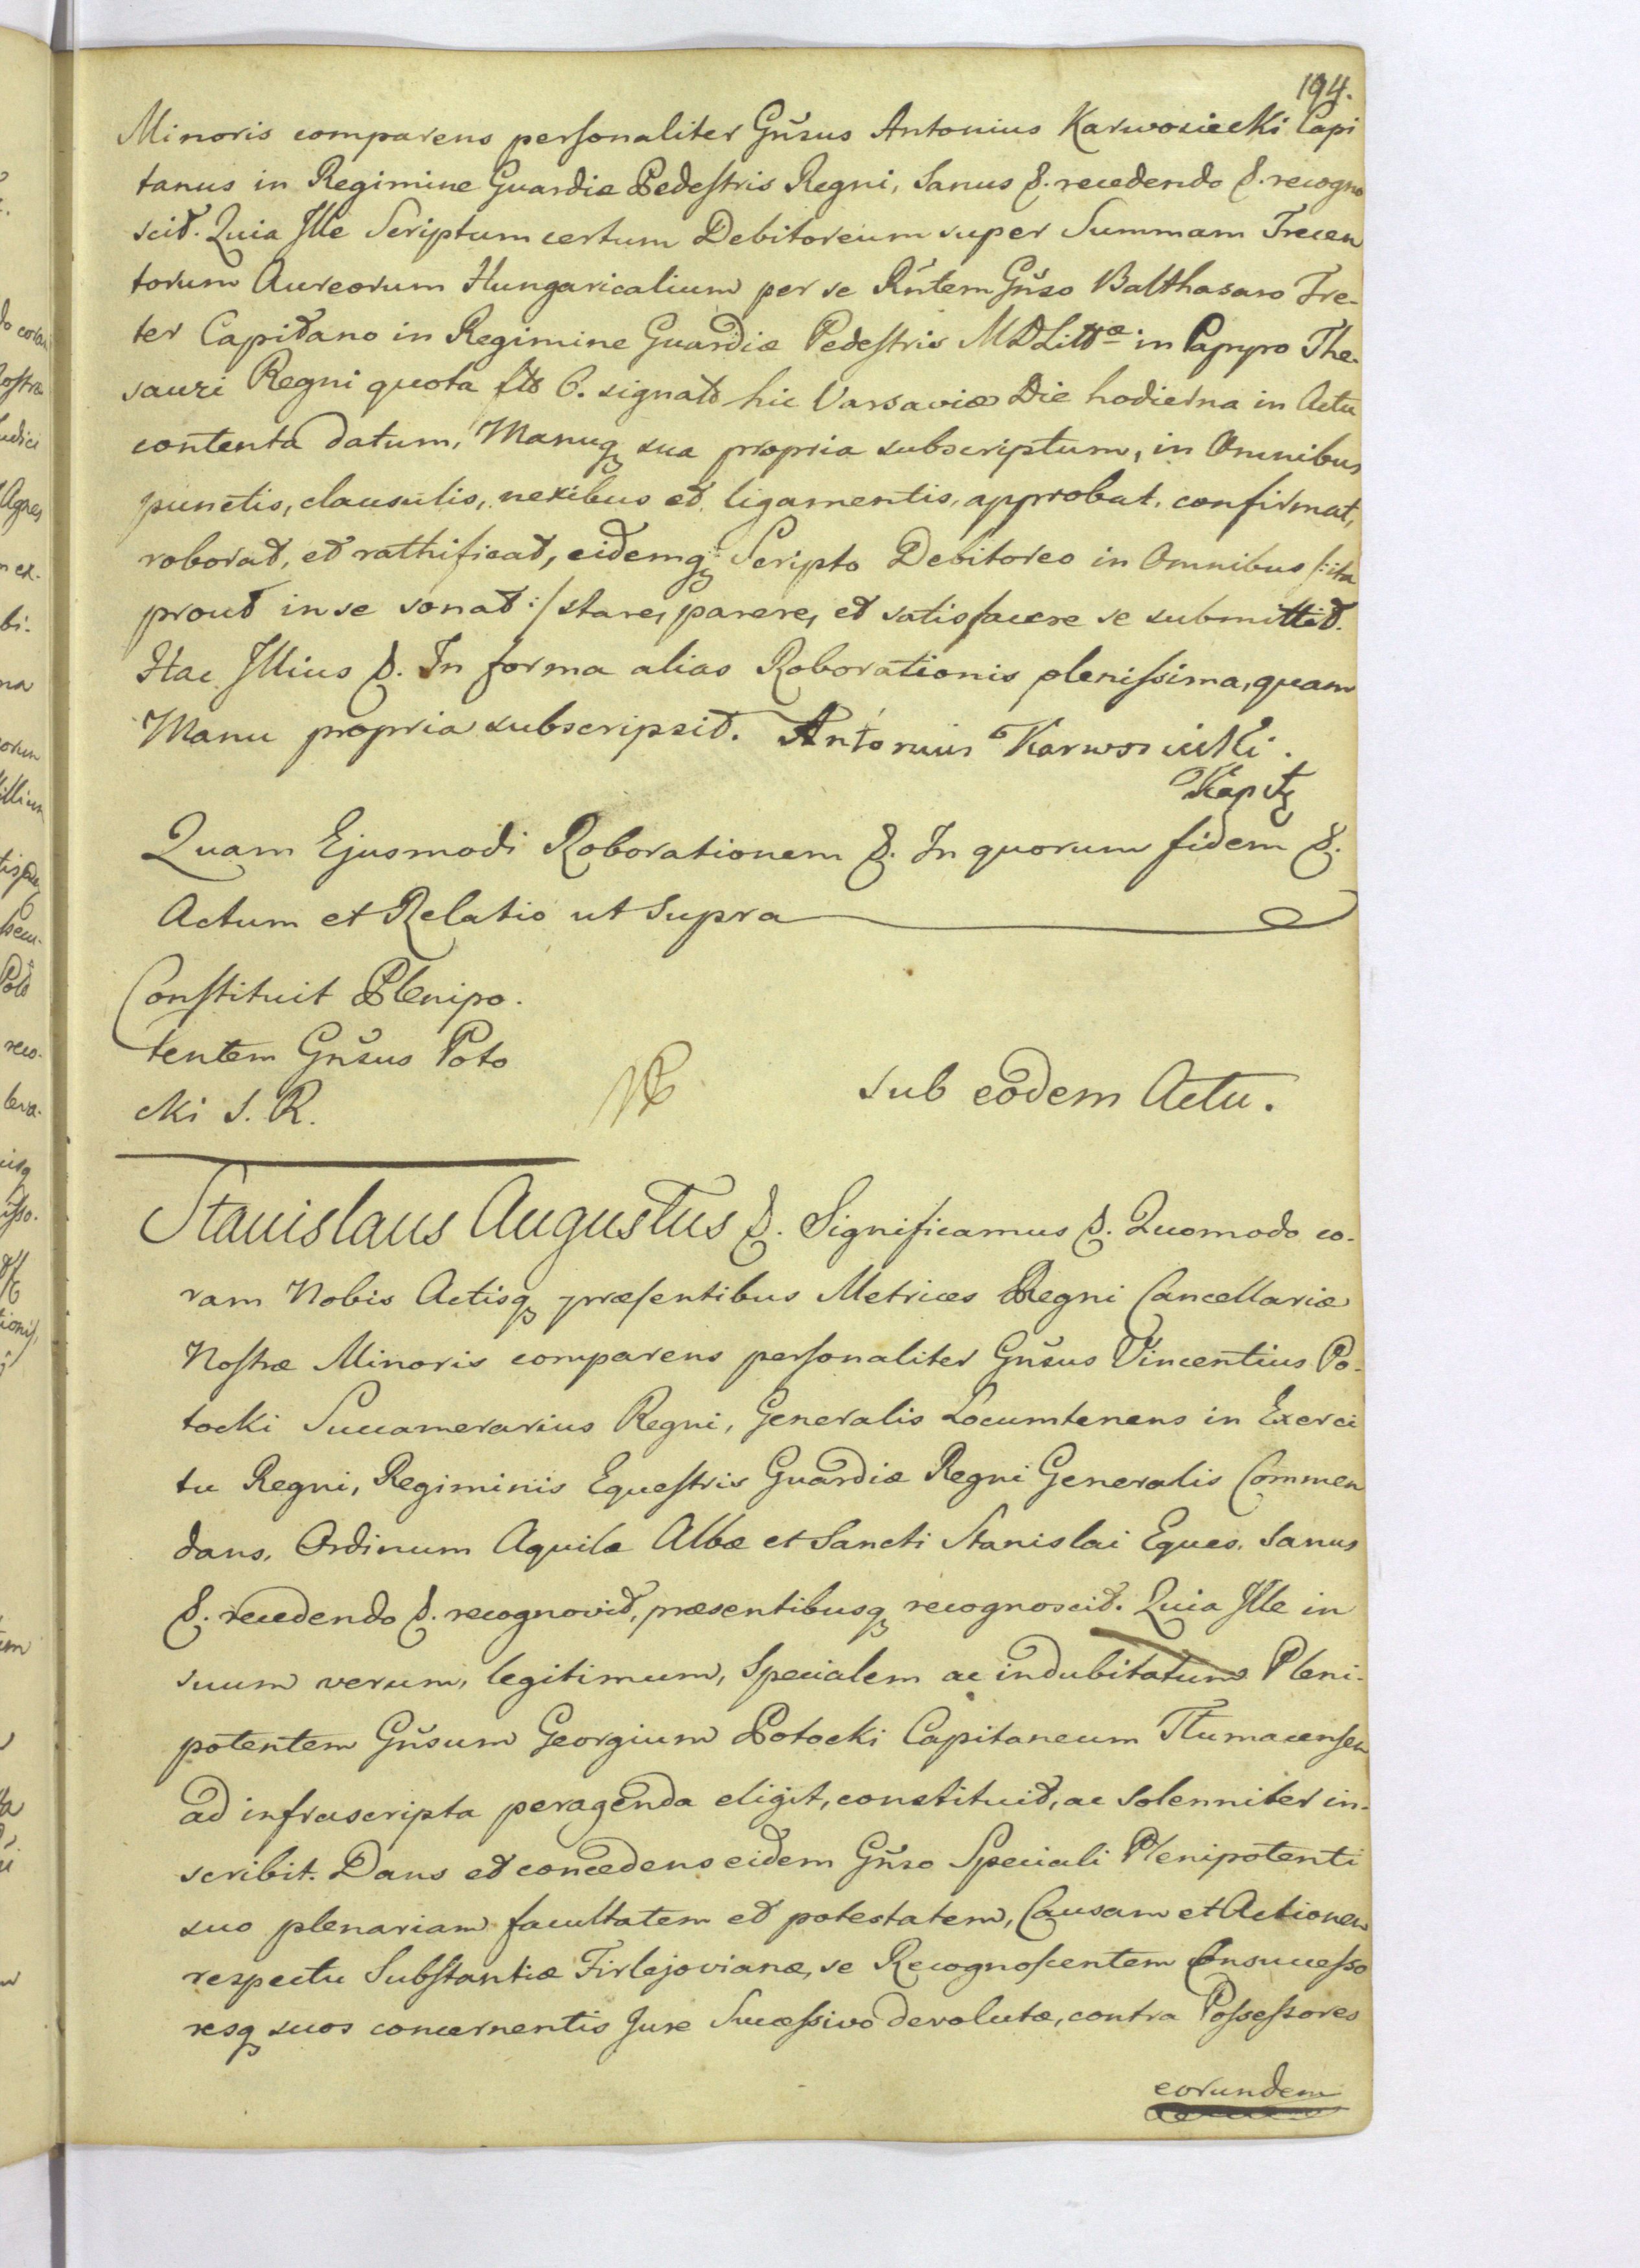 194.
Minoris comparens personaliter Gñsus Antonius Karwosiecki Capi
tanus in Regimine Guardiæ Pedestris Regni, Sanus &. recedendo &. recogno
scit. Quia Ille Scriptum certum Debitoreum super Summam Trecen
torum Aureorum Hungaricalium per se Rñtem Gñso Balthasaro Tre-
ter Capitano in Regimine Guardiæ Pedestris M D Littæ in Papyro The-
sauri Regni quota fto 6. signato hic Varsaviæ Die hodierna in Actu
contenta datum, Manuq sua propria subscriptum, in Omnibus
punctis, clausulis, nexibus et ligamentis, approbat, confirmat,
roborat, et rathificat, eidemq Scripto Debitoreo in Omnibus /: ita
prout in se sonat :/ stare, parere, et satisfacere se submittit.
Hac Illius &. In forma alias Roborationis plenissima, quam
Manu propria subscripsit. Antonius Karwosiecki.
Kapit
Quam Ejusmodi Roborationem &. In quorum fidem &.
Actum et Relatio ut Supra
Constituit Plenipo.
tentem Gñsus Poto
cki S. R.
sub eodem Actu.
Stanislaus Augustus &. Significamus &. Quomodo co-
ram Nobis Actisq præsentibus Metrices Regni Cancellariæ
Nostræ Minoris comparens personaliter Gñsus Vincentius Po-
tocki Succamerarius Regni, Generalis Locumtenens in Exerci
tu Regni, Regiminis Equestris Guardiæ Regni Generalis Commen
dans, Ordinum Aquilæ Albæ et Sancti Stanislai Eques, Sanus
&. recedendo &. recognovit, præsentibusq recognoscit. Quia Ille in
suum verum, legitimum, Specialem ac indubitatum Pleni-
potentem Gñsum Georgium Potocki Capitaneum Tłumacensem
ad infrascripta peragenda eligit, constituit, ac Solenniter in-
scribit. Dans et concedens eidem Gñso Speciali Plenipotenti
suo plenariam facultatem et potestatem, Causam et Actionem
respectu Substantiæ Firlejovianæ, se Recognoscentem Consuccesso
resq suos concernentis Jure Successivo devolutæ, contra Possessores
eorundem